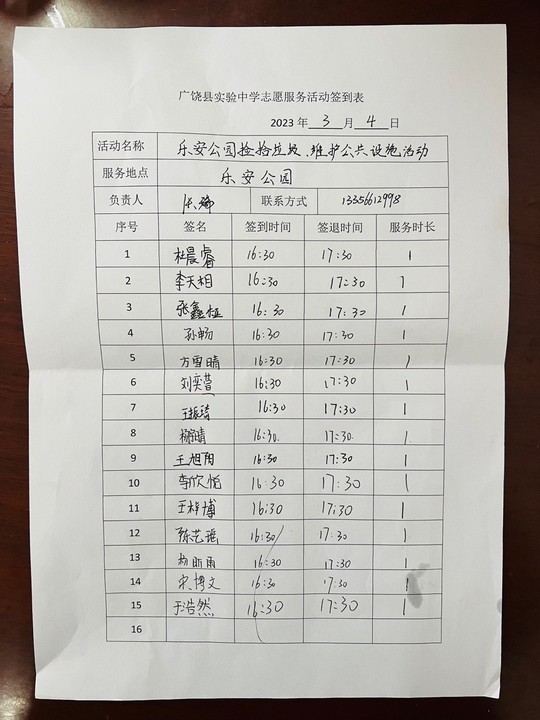 广饶县实验中学志愿服务活动签到表
2023 年 3 月 4 日
活动名称 乐安公园捡拾垃圾、维护公共设施活动
服务地点 乐安公园
负责人 联系方式 13356612998
序号 签名 签到时间 签退时间 服务时长
1 杜晨睿 16:30 17:30 1
2 李天相 16:30 17:30 1
3 张鑫 16:30 17:30 1
4 孙畅 16:30 17:30 1
5 方雪晴 16:30 17:30 1
6 刘奕萱 16:30 17:30 1
7 16:30 17:30 1
8 16:30. 17:30. 1
9 王旭阳 16:30 17:30 1
10 李欣悦 16:30 17:30 1
11 王梓博 16:30 17:30 1
12 陈艺瑶 16:30 17:30 1
13 昕雨 16:30 17:30 1
14 宋博文 16:30 17:30 1
15 于浩然 16:30 17:30 1
16